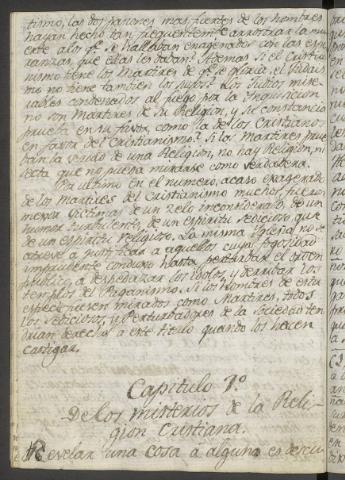 tismo, las dos pasiones mas fuertes de los hombres
hayan hecho tan frequentemente arrostrar la mu-
erte a los qe. se hallavan enagenados con las espe-
ranzas, que ellas les daban? Ademas si el Cristia-
nismo tiene los Martires de qe. se gloria, el Judais
mo no tiene tambien los suyos? Los Judios mise-
rables condenados al fuego por la Inquisicion
no son Martires de su Religion, y su constancia
prueba en su favor, como la de los Cristianos
en favor del Cristianismo? Si los Martires prue
ban la verdad de una Religion, no hay Religion, ni
secta que no pueda mirarse como verdadera.
Por ultimo en el numero, acaso exagerado
de los Martires del Cristianismo muchos fueron
mejor victimas de un zelo inconsiderado, de un
humor turbulento, de un espiritu sedicioso que
de un espiritu religioso. La misma Iglesia no se
atreve a justificar a aquellos cuya fogosidad
imprudente conduxo hasta perturbar el orden
publico, a despedazar los Idolos, y derribar los
templos del Paganismo. Si los hombres de esta
especie fuesen mirados como Martires, todos
los sediciosos, y Perturbadores de la Sociedad ten
drian derecho a este titulo quando los hacen
castigar.
Capitulo 7º
De los misterios de la Reli-
gion Cristiana.
Revelar una cosa a alguno es descu-